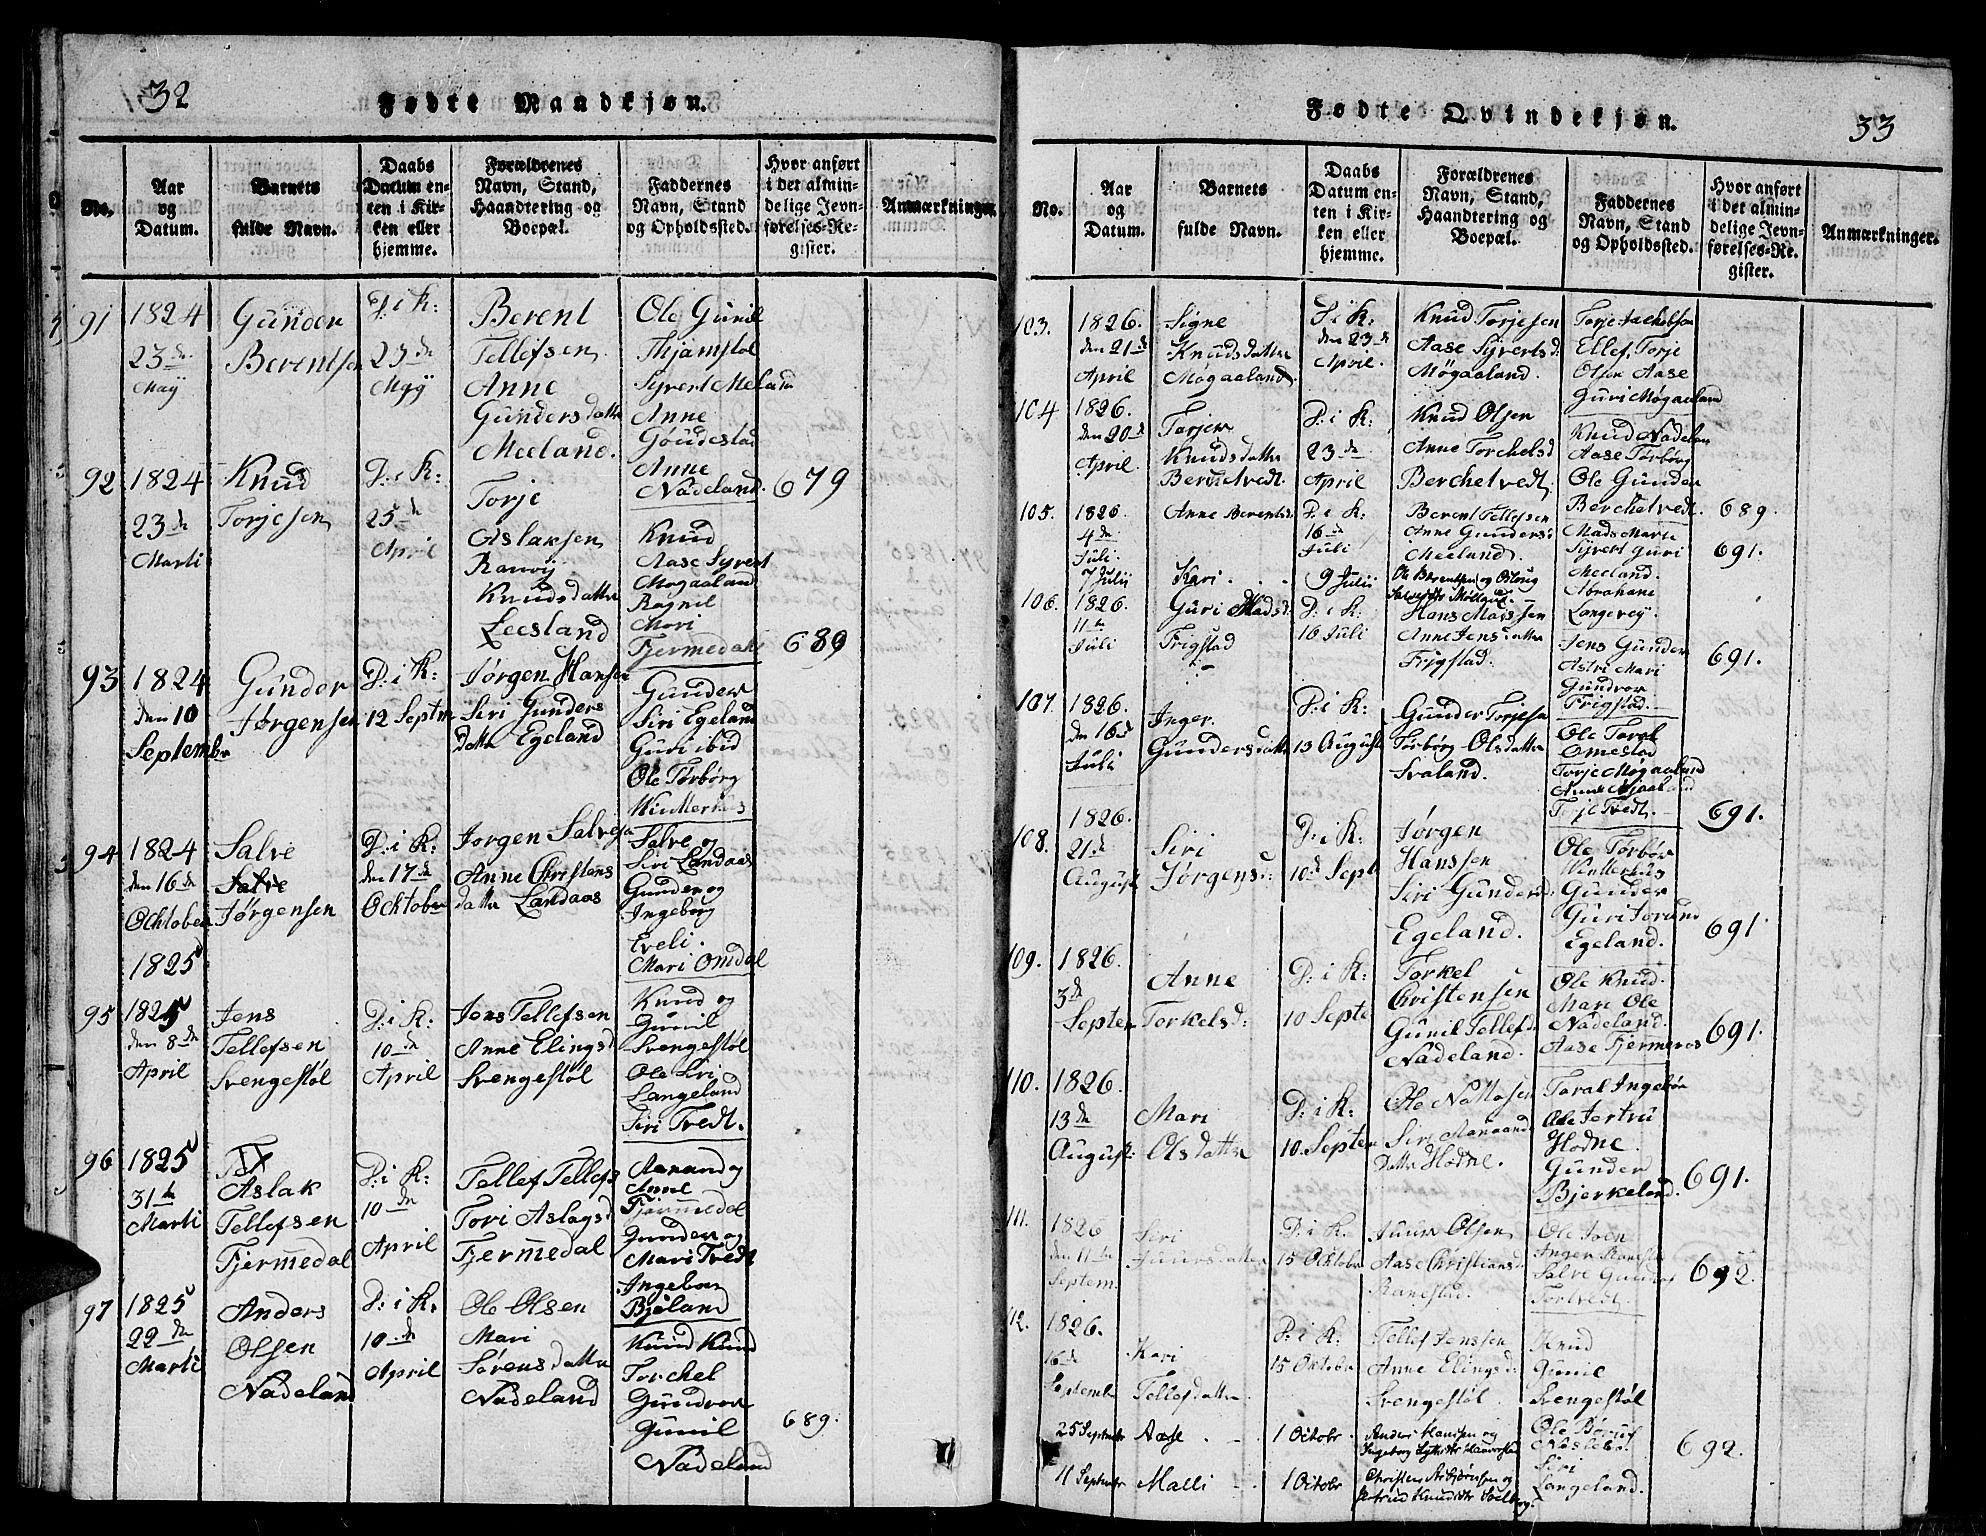 32
Fødte Mandkjøn.
No.
Aar og Datum.
Barnets fulde Navn.
Daabs Datum enten i Kirken eller hjemme.
Forældrenes Navn, Stand, Haandtering og Boepæl.
Faddernes Navn, Stand og Opholdssted.
Hvor anført i det almindelige Jevnførelses-Register.
Anmærkninger.
91
1824
23de
May
Gunder
Berentsen
D: i K:
23de
May
Berent
Tellefsen
Anne
Gundersdatter
Meeland.
Ole Gunil
Thjamstøl
Syvert Meland
Anne
Anne
Nådeland.
679
92
1824
23de
Marti
Knud
Torjesen
D: i K:
25de
April
Torje
Aslaksen
Knudsdatter
Leesland
Knud
Aase Syvert
Møgaaland
Ragnil
Mari
Fjermedal
689
93
1824
den 10
Septembr
Gunder
Jørgensen
D: i K:
12 Septm
Jørgen Hansen
Siri Gunders
datter Egeland
Gunder
Siri Egeland
Guri ibid
Ole Tørbørg
94
1824
den 16de
Ochtober
Salve
Salve
Jørgensen
D: i K:
den 17de
Ochtober
Jorgen Salvesen
Anne Christens
datter Landaas
Salve og
Siri Landaas
Gunder og
Ingeborg
Eveli.
Mari Omdal
1825
95
1825
den 8de
April
Jens
Tellefsen
Svengestøl
D: i K:
10de
April
Jens Tellefsen
Anne Elingsd
Svengestøl
Knud og
Gunil
Svengestøl
Ole Siri
Langeland
Siri Tvedt.
96
1825
31te
Marti
Aslak
Tellefsen
Fjermedal
D: i K:
10de
April
Tellef Tellefs
Tori Aslagsd
Fjermedal
Aanand og
Anne
Fjermedal
Gunder og
Mari Tvedt
Ingebor
Bjeland
97
1825
22de
Marti
Anders
Olsen
Nådeland
D: i K:
10de
April
Ole Olsen
Mari
Sørensdatter
Nådeland
Knud Knud
Torchel
Gundvor
Gunil
Nådeland
689.
33
Fødte Qvindekjøn.
No.
Aar og Datum.
Barnets fulde Navn.
Daabs Datum enten i Kirken eller hjemme.
Forældrenes Navn, Stand, Haandtering og Boepæl.
Faddernes Navn, Stand og Opholdssted.
Hvor anført i det almindelige Jevnførelses-Register.
Anmærkninger.
103.
1826.
den 21de
April
Signe
Knudsdatter
Møgaaland
D: i K:
den 23de
April.
Knud Torjesen
Aase Syvertsd:
Møgaaland.
Torje Jachobsen
Ellef, Torje
Olsen Aase
Guri Møgaaland
104
1826.
den 20de
April.
Torjer
Knudsdatter
D: i K:
23de
April
Knud Olsen
Anne Torchelsd
Berchetvedt
Knud Nådeland
Aase Tørbørg
Ole Gunder
Berchetvedt.
689.
105.
1826.
4de
Juli.
Anne Berentsd:
D: i K:
16de
Juli
Berent Tellefsen
Anne Gundersd:
Meeland.
Mads Marte
Syvert Guri
Meeland.
691.
7 Julii
Kari.
9 Julii
106.
1826.
11te
Juli
Guri Madsd:
Frigstad
D: i K:
16 Juli
Anne Jensdatter
Frigstad.
Abrahame
Langevej.
Jens Gunder
Astri Mari
Gundvor
Frigstad.
691.
107.
1826.
den 16de
Juli
Inger.
Gundersdatter
D: i K:
13 August
Gunder Torjesen
Tørbørg Olsdatter
Svaland.
Ole Taral
Omestad
Torje Møgaaland
Torje Tvedt.
691.
108.
1826.
21de
August
Siri
Jørgensd:
D: i K:
10de Sept
Jørgen
Hanssen
Siri Gundersd:
Egeland.
Ole Tørbør
Gunder
Guri Torund
Egeland.
691.
109.
1826.
3de
Septem
Anne
Torkelsd:
D: i K:
10 Septe
Torkel
Christensen
Gunil Tellefsd
Nådeland.
Ole Knud.
Mari Ole
Nådeland.
Aase Fjermeros
691.
110.
1826.
13de
August:
Mari
Olsdatter
D: i K:
10. Septem
Siri Aanaand
datter Hodne.
Taral Ingebør
Ole Jertru
Hodne.
Gunder
Bjerkeland.
691.
111.
1826
den 11te
Septem.
Siri
Juursdatter
D: i K:
15 Ochtobr
Juur Olsen
Aase Christiansd
Ranestad.
Ole Joen
Inger Ranestad
Salve Gunder
Tortvedt.
692.
112.
1826.
16de
Septembr
Kari
Tellefdatter.
D: i K:
15 Oktobr
Tellef Jenssen
Anne Elingsd:
Svengestøl
Knud
Gunil
Svengestøl
25 Septembr
Aase
1 Octobr.
Anders Hansen og
Ole Børuf
Siri
Langeland.
692.
11 Septembr
Malli
1 Octobr